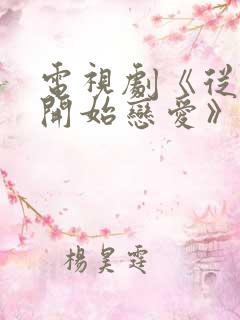 電視劇《從
開始戀愛》
楊昊霆